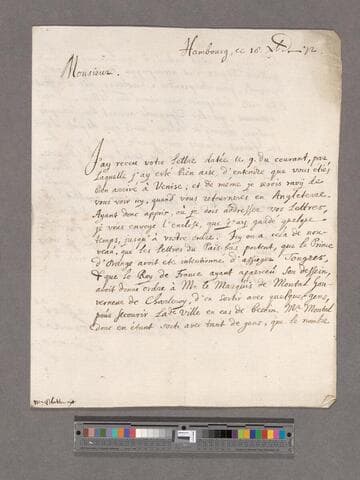 Hambourg, ce 16. Xbr. 72
Monsieur.
J'ay receu votre Lettre datée le 9. du courant, par
laquelle j'ay esté bien aise d'entendre que vous estiés
bien arrivé à Venise, et de mesme je serois ravy de
vous voir icy, quand vous retournerés en Angleterre.
Ayant donc appris, ou je dois addresser vos Lettres,
je vous envoye l'enclose, que j'ay gardé quelque
temps, jusqu'à vostre ordre. Icy on a cela de nou-
veau, que les Lettres du Pais-bas portent, que le Prince
d'Orange avoit esté intentionné d'assieger Tongres,
& que le Roy de France ayant apperceu son dessein,
avoit donné ordre à Mr. le Marquis de Montal Gou-
verneur de Charleroy, d'en sortir avec quelques gens,
pour secourir Lade. Ville en cas de besoin. Mr. Montal
donc en étant sorti avec tant de gens, que le nombre